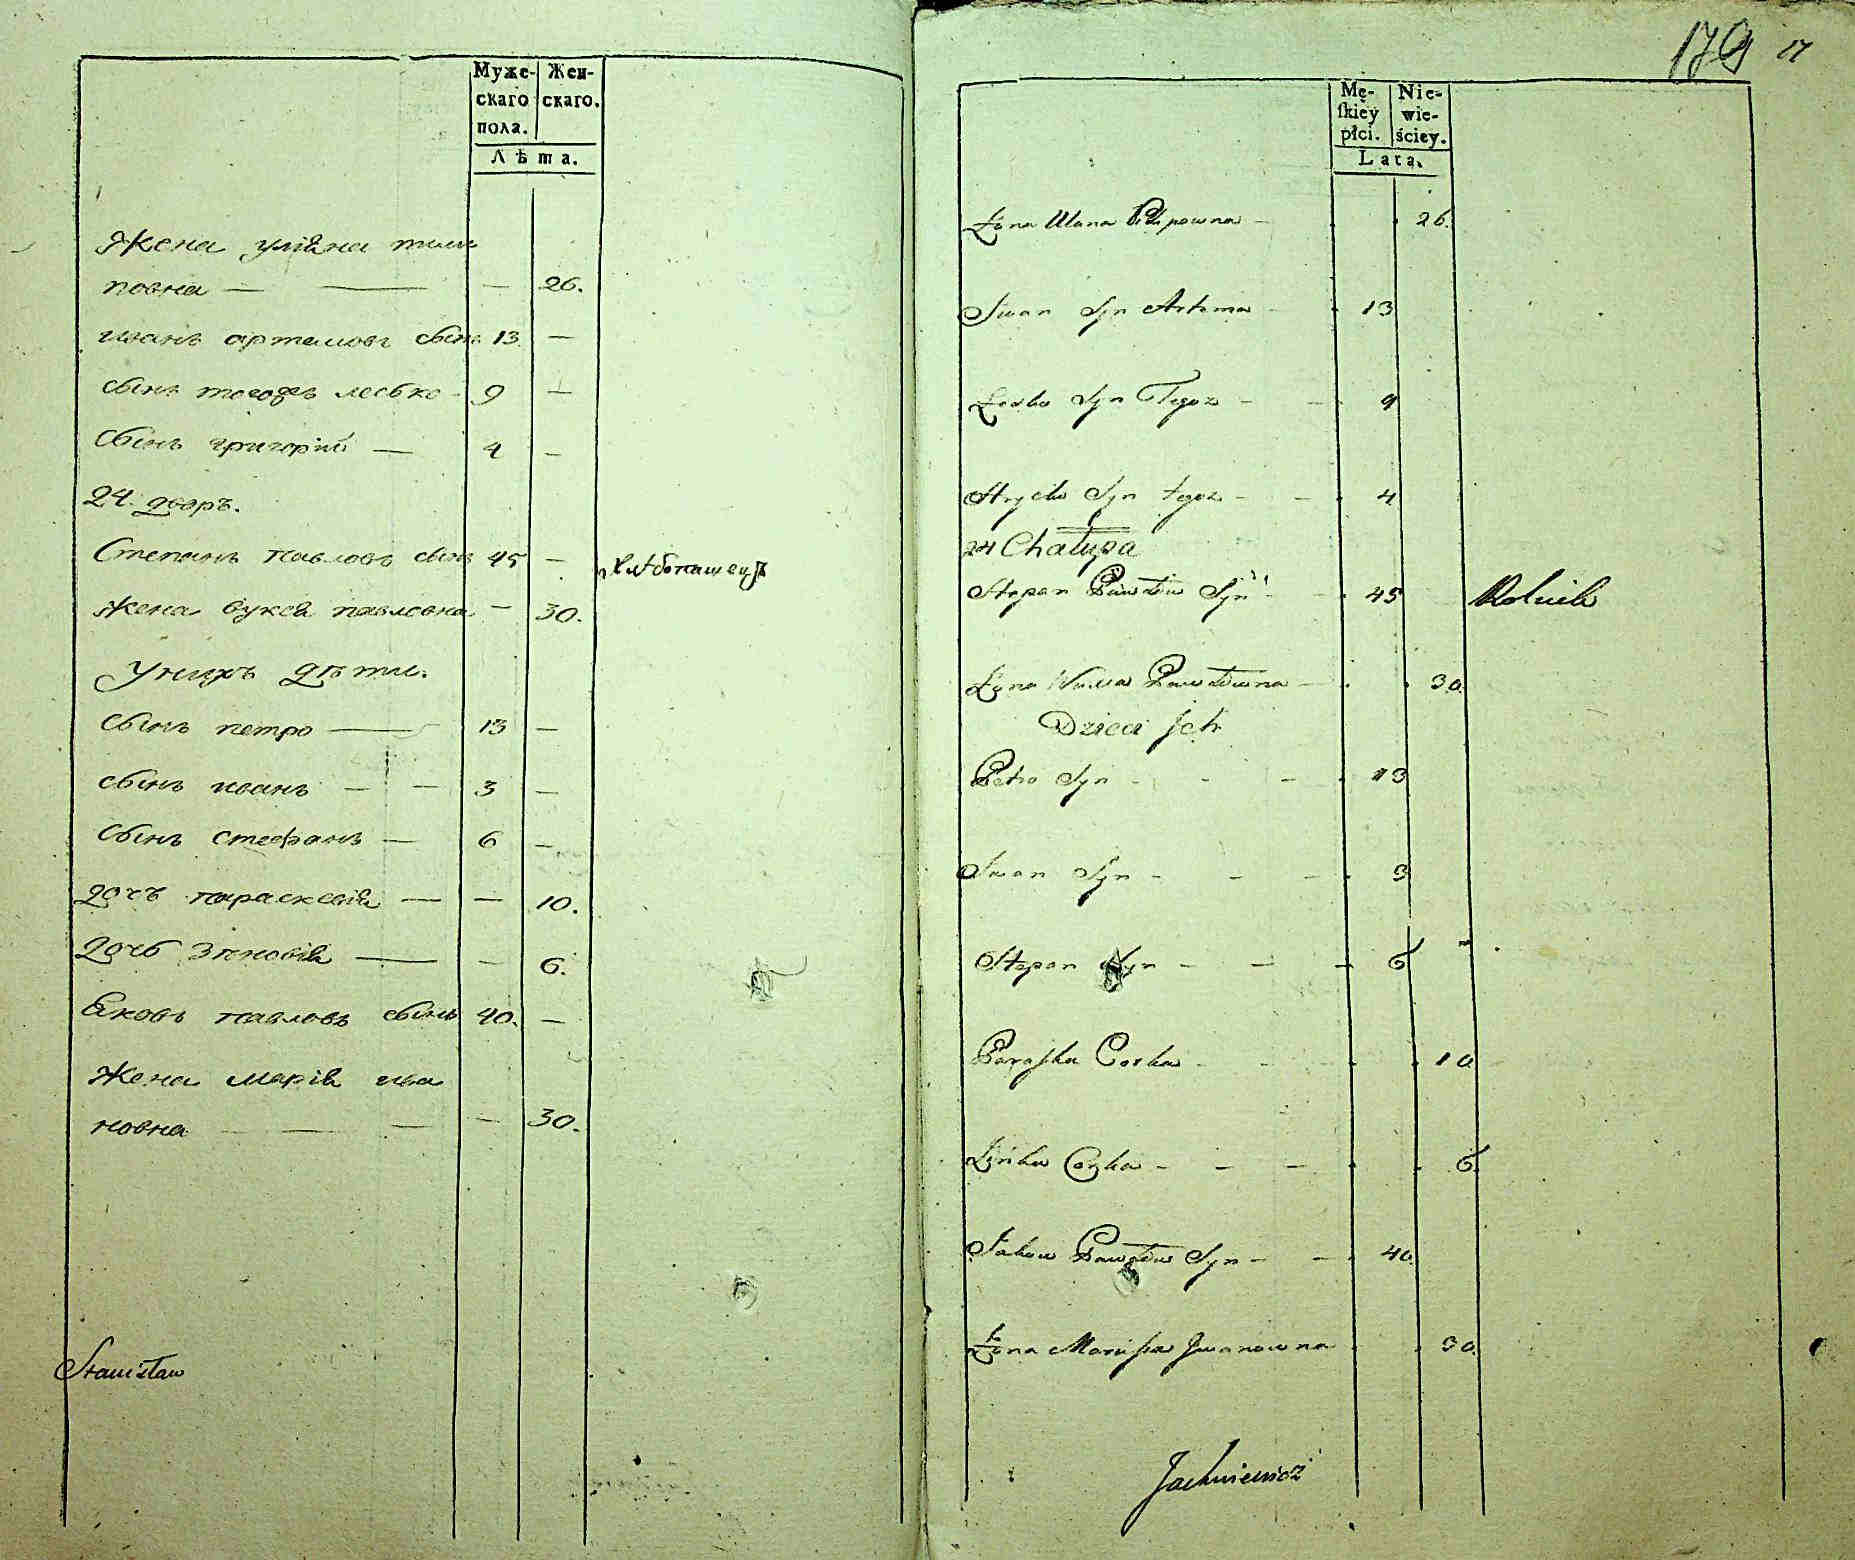 Муже-
скаго
пола.
Жен-
скаго.
Лѣта.
Жена улiяна пили
повна — — — 26.
иванъ артемовъ сынъ 13. —
сынъ тогожъ лесько - 9 —
Сынъ григорiй — 4 —
24. дворъ.
Степанъ павловъ сынъ 45 — хлѣбопашецъ
жена вукся павловна — 30.
Унихъ дѣти.
сынъ петро — 13 —
сынъ иванъ — — 3 —
Сынъ стефанъ — 6 —
дочъ параскевiя — — 10.
дочь Зѣновiя — — 6.
Яковъ павловъ сынъ 40. —
Жена марiя ива
новна — — — — 30.
Stanisław
179 17
Mę-
ſkiéy
płci.
Nie-
wie-
ściey.
Lata.
Żona Ulana Pilipowna - 26.
Iwan Syn Artema - 13
Lesko Syn Tegoz - - 9
Hrycko Syn tegoz - - 4
24 Chałupa
Stepan Pawłow Syn - 45 Rolnik
Żona Pawłowna - 30.
Dzieci Ich
Petro Syn - - - 13
Iwan Syn - - - 3
Stepan Syn - - - 6
Paraſka Corka - - 10
Zińka Corka - - - 6.
Jakow Pawłow Syn - - 40.
Żona Maruſia Iwanowna 30.
Jachniewicz